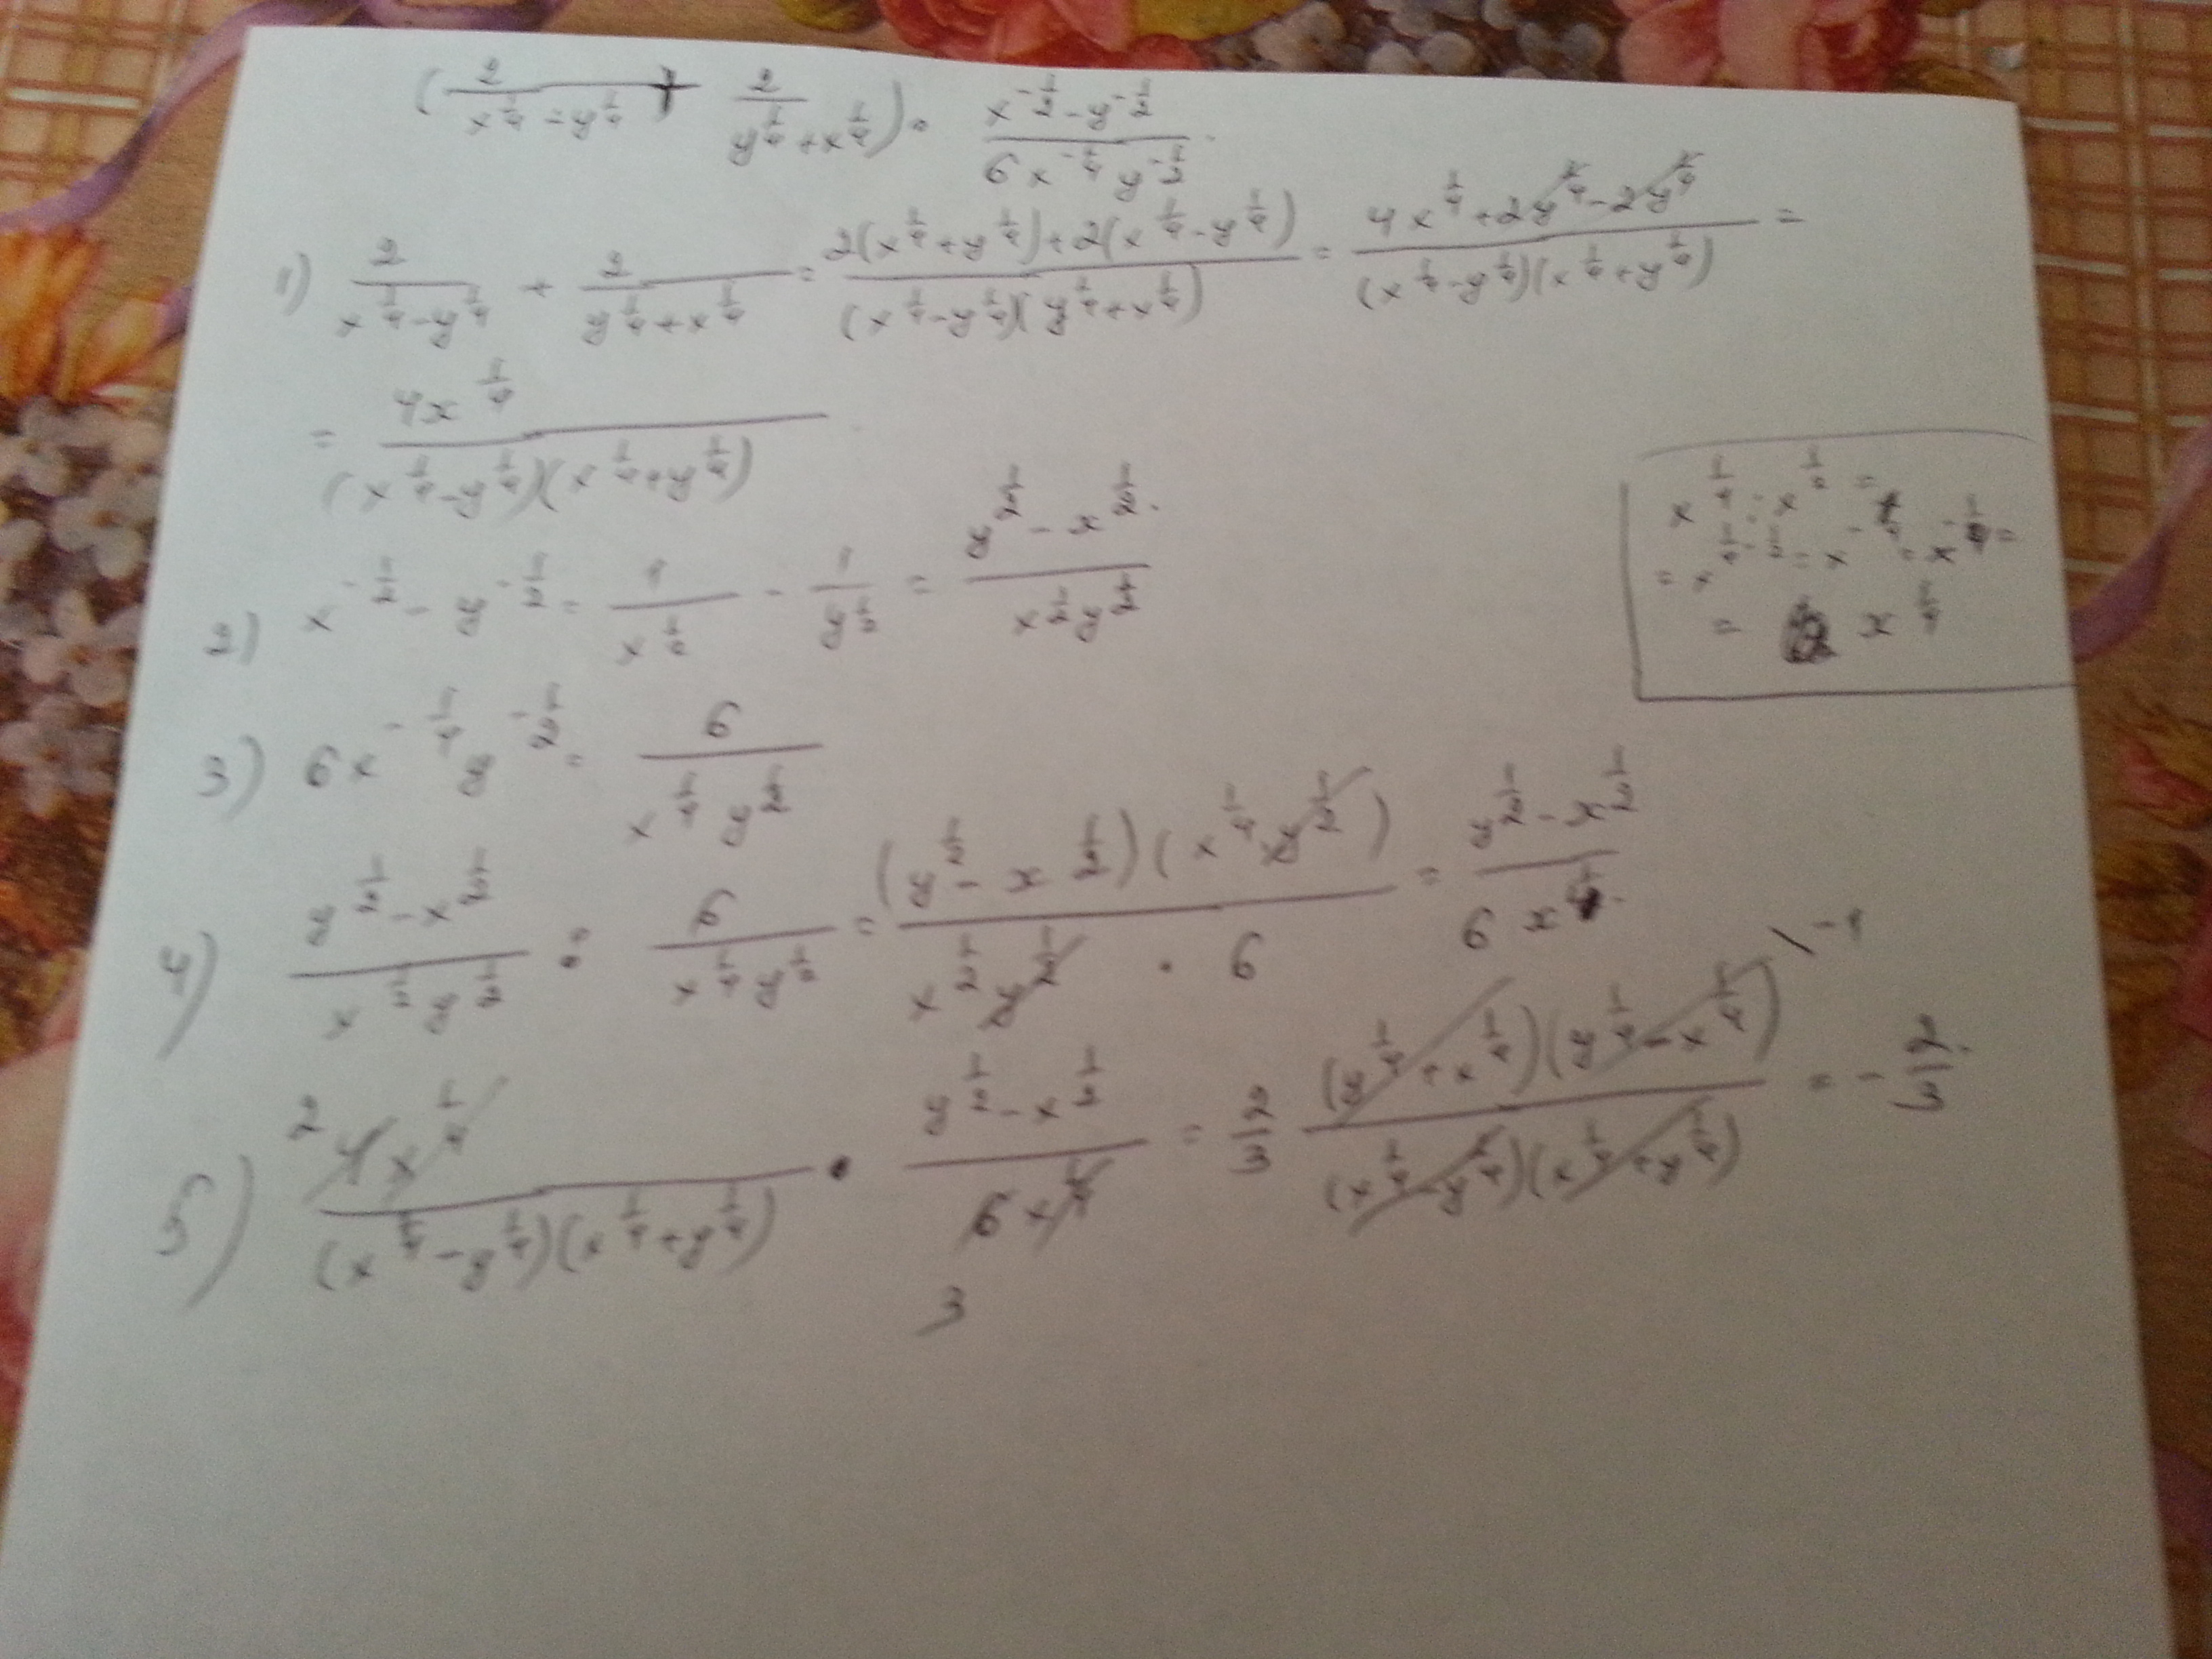 (2/(x^(1/4) - y^(1/4)) + 2/(y^(1/4) + x^(1/4))) · (x^(-1/2) - y^(-1/2))/(6x^(-1/4) y^(-1/2)).
1) 2/(x^(1/4) - y^(1/4)) + 2/(y^(1/4) + x^(1/4)) = (2(x^(1/4) + y^(1/4)) + 2(x^(1/4) - y^(1/4)))/((x^(1/4) - y^(1/4))(y^(1/4) + x^(1/4))) = (4x^(1/4) + 2y^(1/4) - 2y^(1/4))/((x^(1/4) - y^(1/4))(x^(1/4) + y^(1/4))) =
= 4x^(1/4)/((x^(1/4) - y^(1/4))(x^(1/4) + y^(1/4)))
x^(1/4) : x^(1/2) =
= x^(1/4 - 1/2) = x^(-1/4) = x^(-1/4) =
= x^(1/4)
2) x^(-1/2) - y^(-1/2) = 1/x^(1/2) - 1/y^(1/2) = (y^(1/2) - x^(1/2))/(x^(1/2) y^(1/2)).
3) 6x^(-1/4) y^(-1/2) = 6/(x^(1/4) y^(1/2))
4) (y^(1/2) - x^(1/2))/(x^(1/2) y^(1/2)) : 6/(x^(1/4) y^(1/2)) = ((y^(1/2) - x^(1/2))(x^(1/4) y^(1/2)))/(x^(1/2) y^(1/2) · 6) = (y^(1/2) - x^(1/2))/(6x^(1/4)).
5) 2 4x^(1/4)/((x^(1/4) - y^(1/4))(x^(1/4) + y^(1/4))) · (y^(1/2) - x^(1/2))/(6x^(1/4)) = 2/3 ((y^(1/4) + x^(1/4))(y^(1/4) - x^(1/4)))/((x^(1/4) - y^(1/4))(x^(1/4) + y^(1/4))) \ -1 = - 2/3.
3